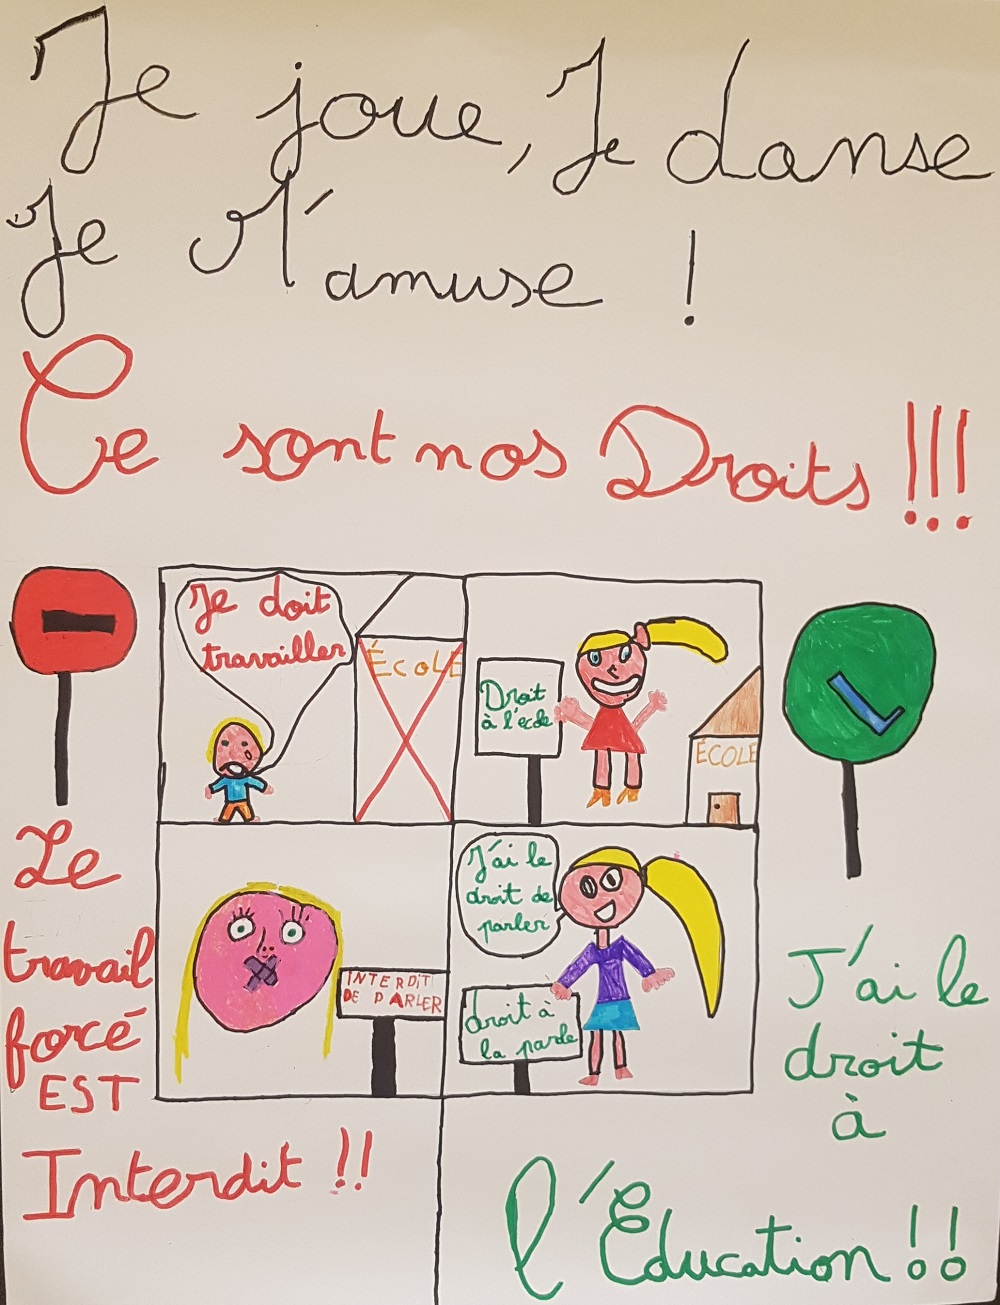 Je joue, Je danse
Je M'amuse !
Ce sont nos Droits !!!
Je doit
travailler
ÉCOLE
Droit
à l'école
ÉCOLE
INTERDIT
DE PARLER
J'ai le
droit de
parler
droit à
la parole
Le
travail
forcé
EST
Interdit !!
J'ai le
droit
à
l'Éducation !!